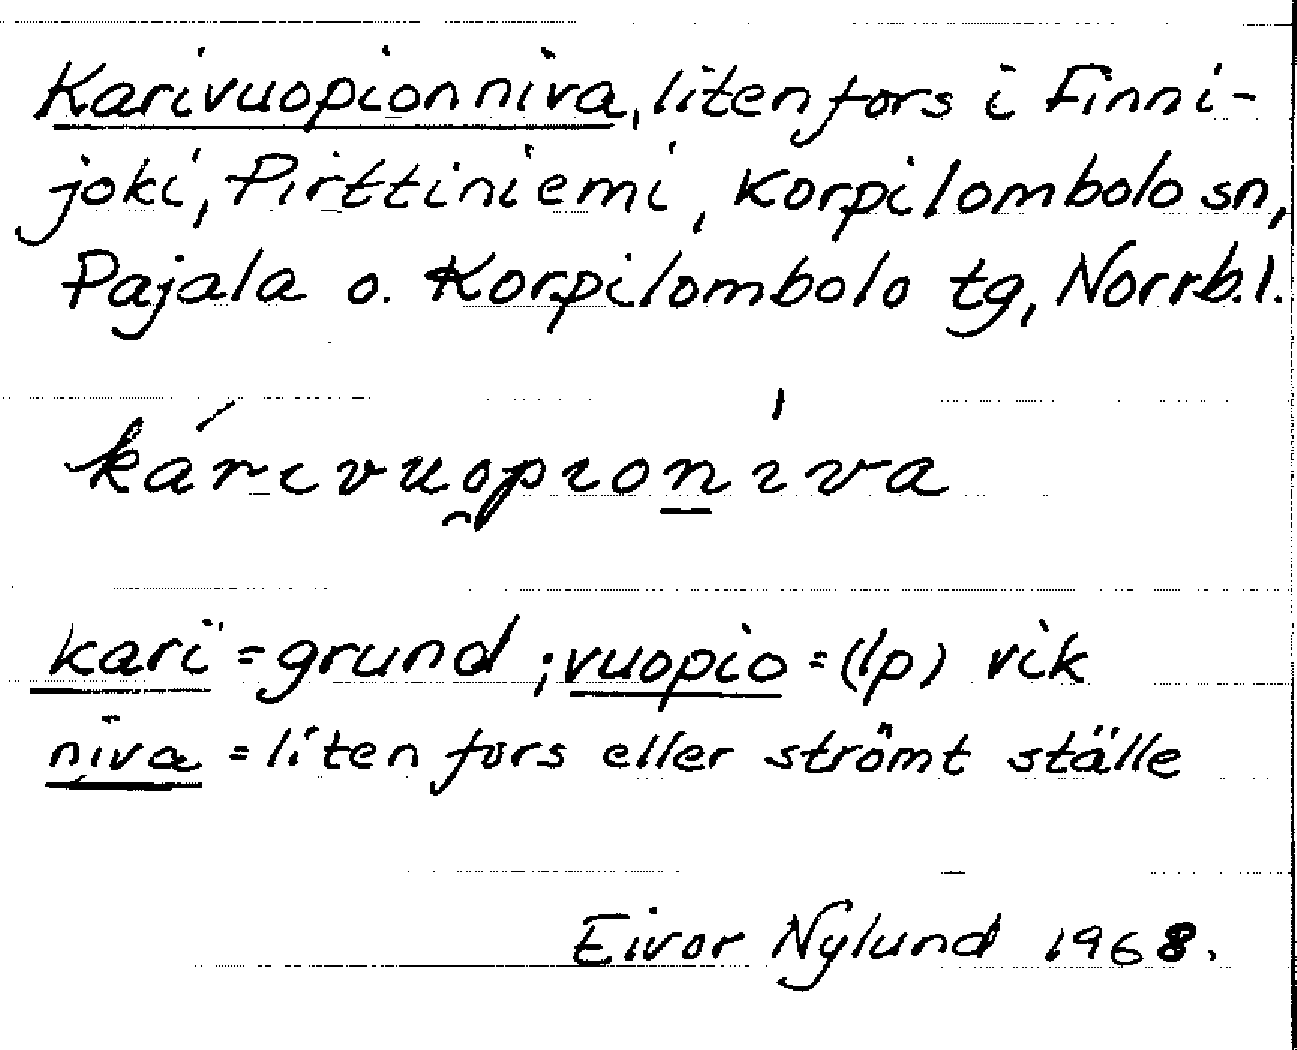 Karivuopionniva, liten fors i Finni-
joki, Pirttiniemi, Korpilombolo sn,
Pajala o. Korpilombolo tg, Norrb.l.
kárivuo̯pion̲ìva
kari = grund ; vuopio = (lp) vik
niva = liten fors eller strömt ställe
Eivor Nylund 1968.